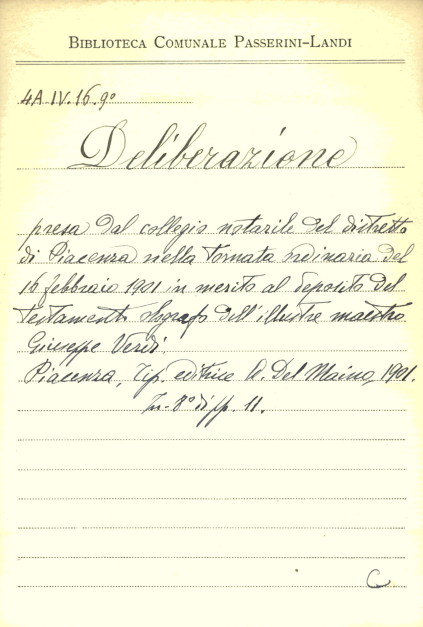 BIBLIOTECA COMUNALE PASSERINI-LANDI
4A.IV.16.9°
Deliberazione
presa dal collegio notarile del distretto
di Piacenza nella tornata ordinaria del
16 febbraio 1901 in merito al deposito del
testamento olografo dell'illustre maestro
Giuseppe Verdi.
Piacenza, Tip. editrice A. Del Maino, 1901.
In-8° di pp. 11.
C